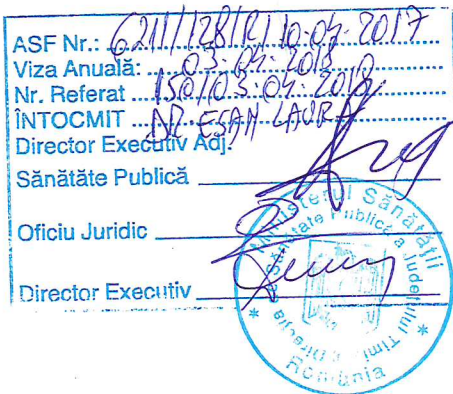 ASF Nr.: 6211/128/R/10.04.2017
Viza Anuală: 03.04.2018
Nr. Referat 150/03.04.2018
ÎNTOCMIT DR ESAN LAURA
Director Executiv Adj.
Sănătăte Publică
Oficiu Juridic
Director Executiv
Ministerul Sănătății
Direcția de Sănătate Publică a Județului Timiș
România